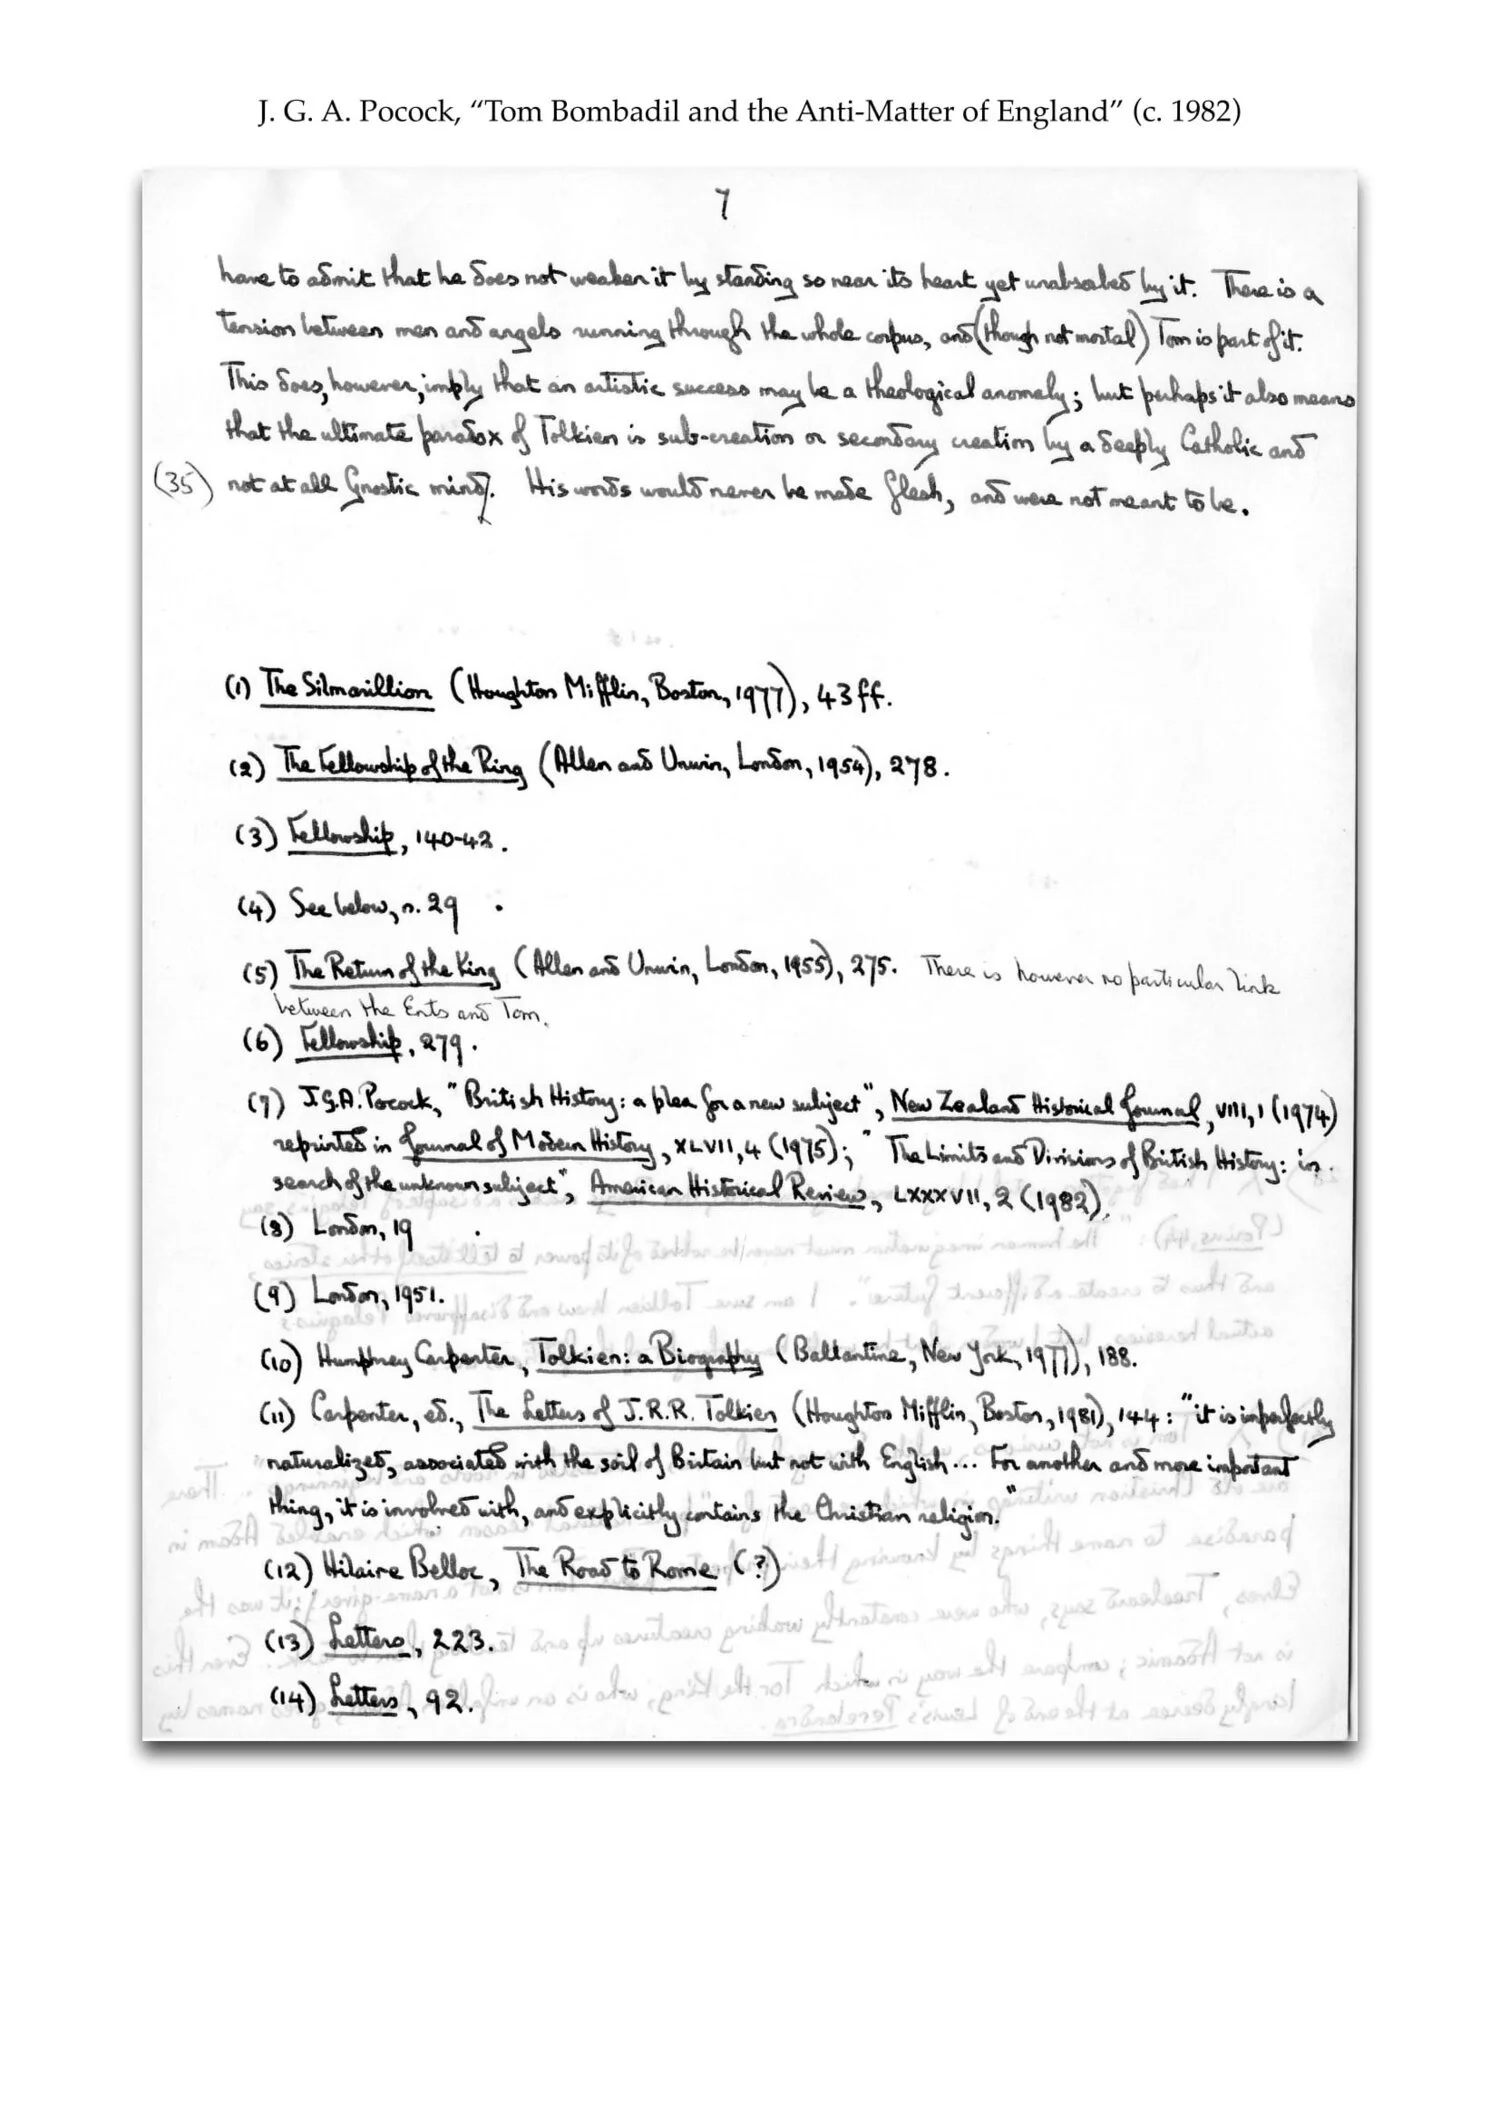 J. G. A. Pocock, “Tom Bombadil and the Anti-Matter of England” (c. 1982)
7
have to admit that he does not weaken it by standing so near its heart yet unabsorbed by it. There is a
tension between men and angels running through the whole corpus, and (though not mortal) Tom is part of it.
This does, however, imply that an artistic success may be a theological anomaly; but perhaps it also means
that the ultimate paradox of Tolkien is sub-creation or secondary creation by a deeply Catholic and
(35) not at all Gnostic mind. His words would never be made flesh, and were not meant to be.
(1) The Silmarillion (Houghton Mifflin, Boston, 1977), 43ff.
(2) The Fellowship of the Ring (Allen and Unwin, London, 1954), 278.
(3) Fellowship, 140-42.
(4) See below, n. 29 .
(5) The Return of the King (Allen and Unwin, London, 1955), 275. There is however no particular link
between the Ents and Tom.
(6) Fellowship, 279.
(7) J.G.A. Pocock, "British History: a plea for a new subject", New Zealand Historical Journal, VIII, 1 (1974)
reprinted in Journal of Modern History, XLVII, 4 (1975); "The Limits and Divisions of British History: in
search of the unknown subject", American Historical Review, LXXXVII, 2 (1982).
(8) London, 19 .
(9) London, 1951.
(10) Humphrey Carpenter, Tolkien: a Biography (Ballantine, New York, 1977), 188.
(11) Carpenter, ed., The Letters of J.R.R. Tolkien (Houghton Mifflin, Boston, 1981), 144: "it is imperfectly
naturalized, associated with the soil of Britain but not with English... For another and more important
thing, it is involved with, and explicitly contains the Christian religion."
(12) Hilaire Belloc, The Road to Rome (?)
(13) Letters, 223.
(14) Letters, 92.